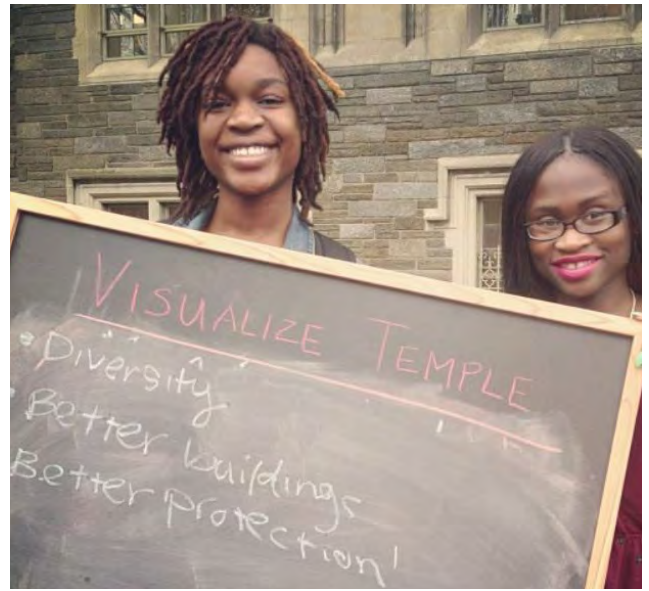 VISUALIZE TEMPLE
• Diversity
• Better buildings
Better protection!